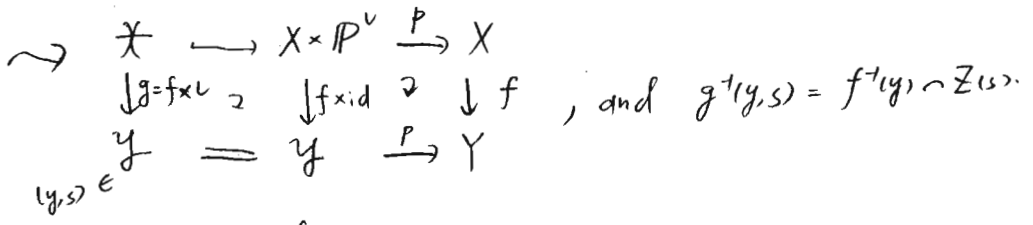 ⇝ 𝒳 ⟶ X × ℙ^∨ —p→ X
↓ g=f×ι ↻ ↓ f×id ↻ ↓ f , and g⁻¹(y,s) = f⁻¹(y) ∩ Z(s).
𝒴 = 𝒴 —p→ Y
(y,s) ∈